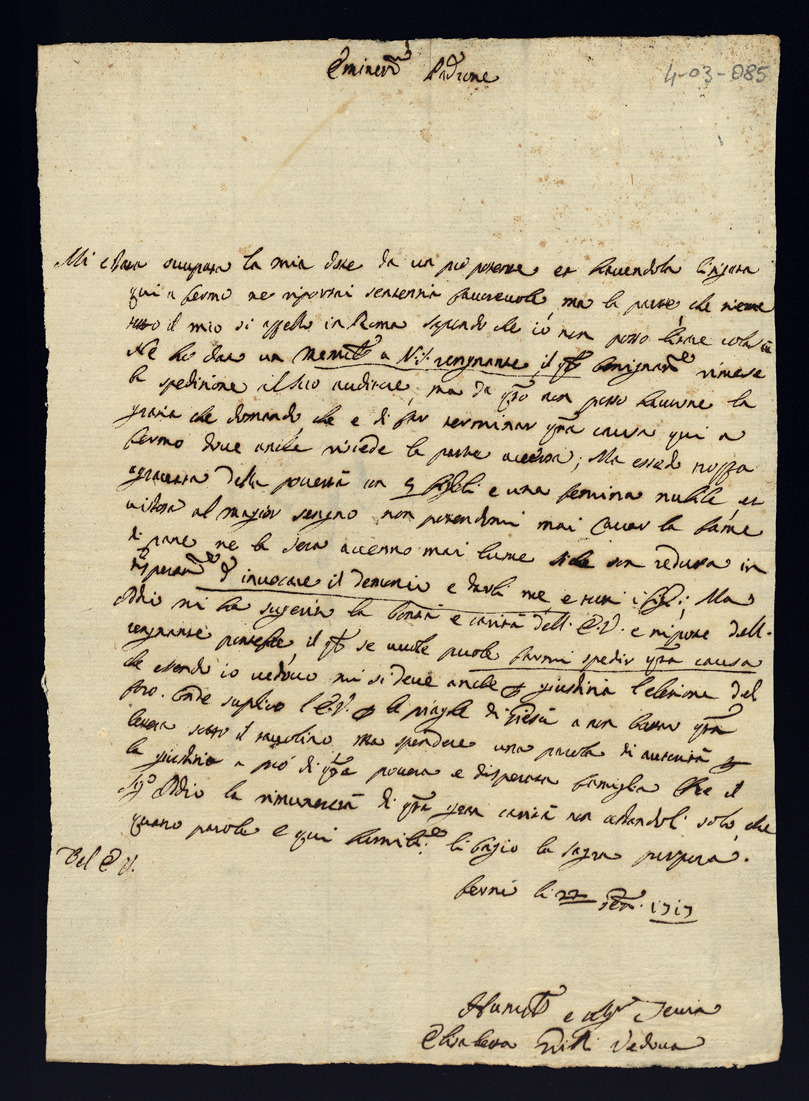 Eminen.mo Padrone
4-03-085
Mi è stata occupata la mia dote da un più potente et havendola litigata
qui a fermo ne riportai sentenza favorevole ma la parte che ritene
tutto il mio si appellò in Roma sapendo che io non posso litigare colà
Ne ho dato un memle a N.S. regnante, il qle benignamte rimese
la spedizione al suo auditore, ma da qto non posso havere la
grazia che domando, che e di far terminar qta causa qui a
fermo dove anche risiede la parte aversa; Ma essendo
agravata della povertà con figli e una femina nubile et
al magior segno non potendomi mai cavar la fame
di pane ne la sera accenno mai lume son reduta in
d'invocare il demonio e darli me e tutti i figli; Ma
Iddio mi ha sugerita la bontà e carità dell. E.V. e nipote dell.
regnante Pontefice il qle se vuole puole farmi spedir qta causa
che essendo io vedova mi si deve anche p giustizia l'elezione del
foro. Onde suplico l'E.V. p le piaghe di Giesù a non butar qta
letera sotto il tavolino ma spendere una parola di autorità p
la giustizia a pró di qta povera e disperata famiglia che il
Sigr Iddio la rimunererà di qta gran carità non costandoli solo, che
quatro parole e qui humilte li bagio la sagra purpura.
Del E.V.
fermi li 27 1717
Humilma e Serva
Elisabetta Vedova